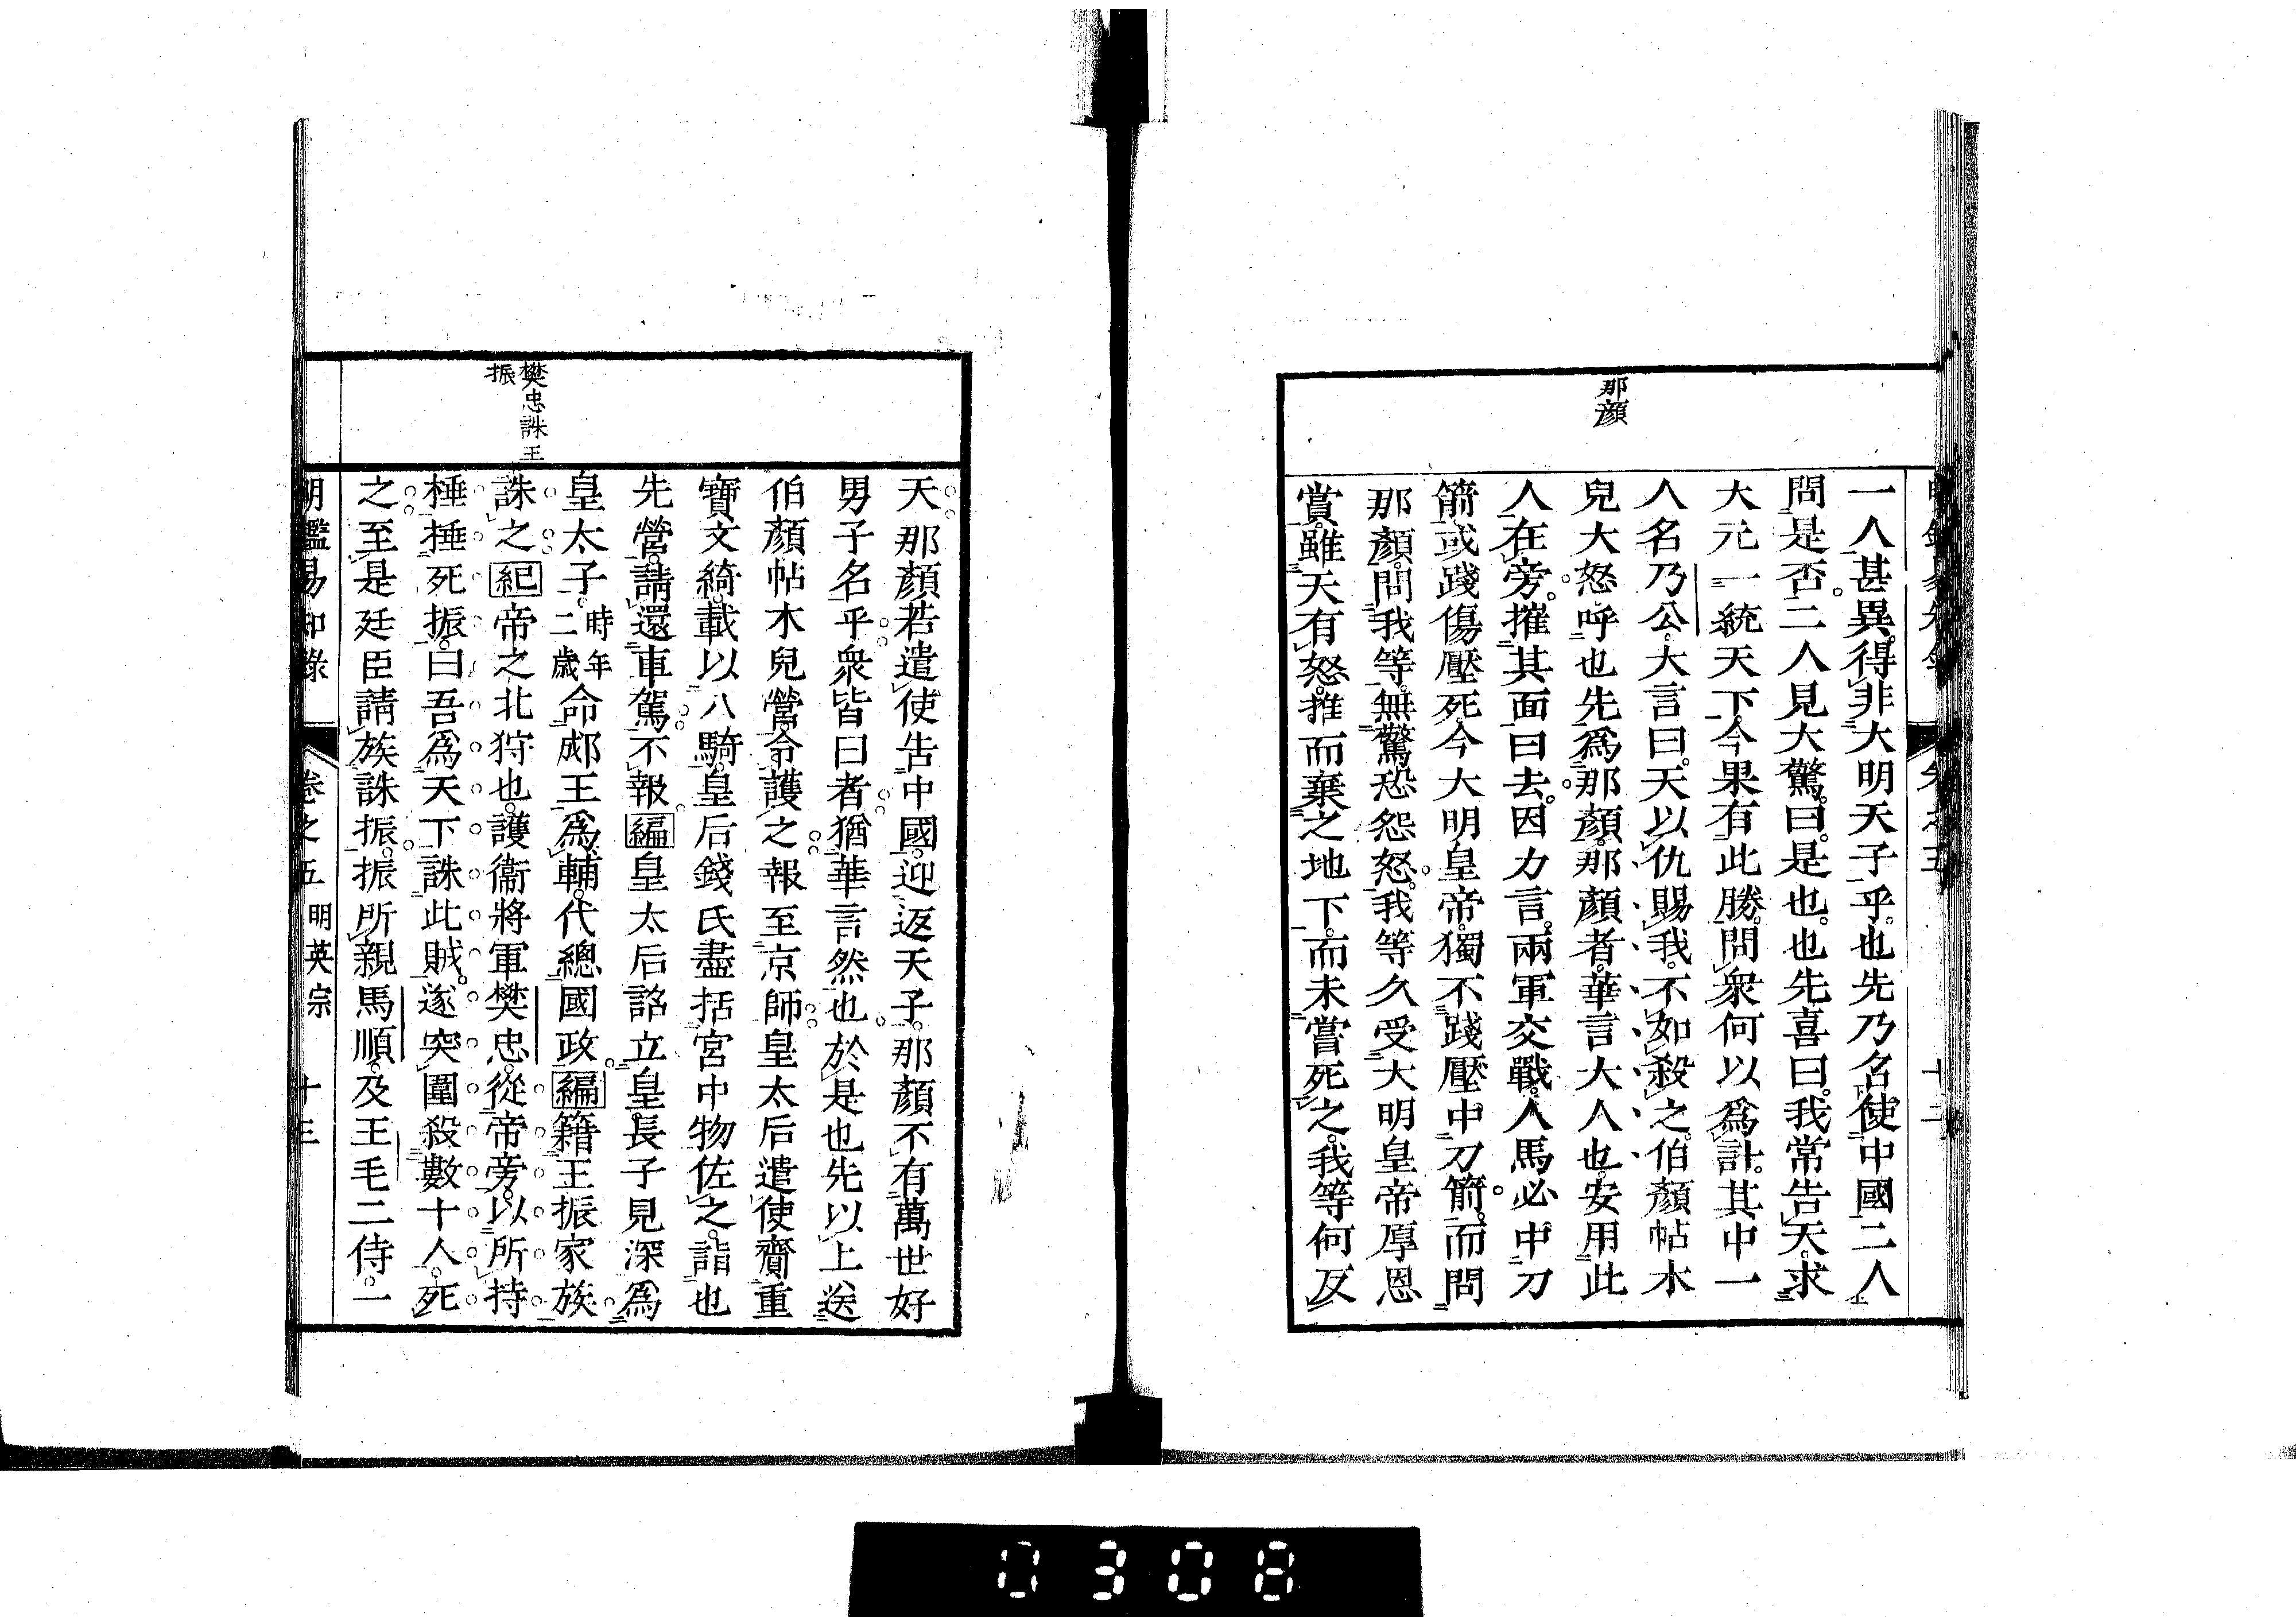 那顏
一人甚異。得非大明天子乎。也先乃名使中國二人
問是否。二人見大驚。曰。是也。也先喜曰。我常告天。求
大元一統天下。今果有此勝。問衆何以爲計。其中一
人名乃公。大言曰。天以仇賜我。不如殺之。伯顏帖木
兒大怒。呼也先爲那顏。那顏者。華言大人也。安用此
人在旁。摧其面曰去。因力言。兩軍交戰。人馬必中刀
箭。或踐傷壓死。今大明皇帝。獨不踐壓中刀箭。而問
那顏。問我等。無驚恐怨怒。我等久受大明皇帝厚恩
賞。雖天有怒。推而棄之地下。而未嘗死之。我等何反
樊忠誅王
振
天那顏若遣使告中國。迎返天子。那顏不有萬世好
男子名乎。衆皆曰者。猶華言然也。於是也先以上送
伯顏帖木兒營。令護之。報至京師。皇太后遣使齎重
寶文綺。載以八騎。皇后錢氏盡括宮中物佐之。詣也
先營。請還車駕。不報編皇太后詔立皇長子見深爲
皇太子。時年二歲命郕王爲輔。代總國政。編籍王振家族
誅之紀帝之北狩也。護衞將軍樊忠。從帝旁。以所持
棰捶死振。曰吾爲天下誅此賊。遂突圍殺數十人。死
之。至是廷臣請族誅振。振所親馬順。及王毛二侍。一
明鑑易知錄 卷之五 明英宗 十三